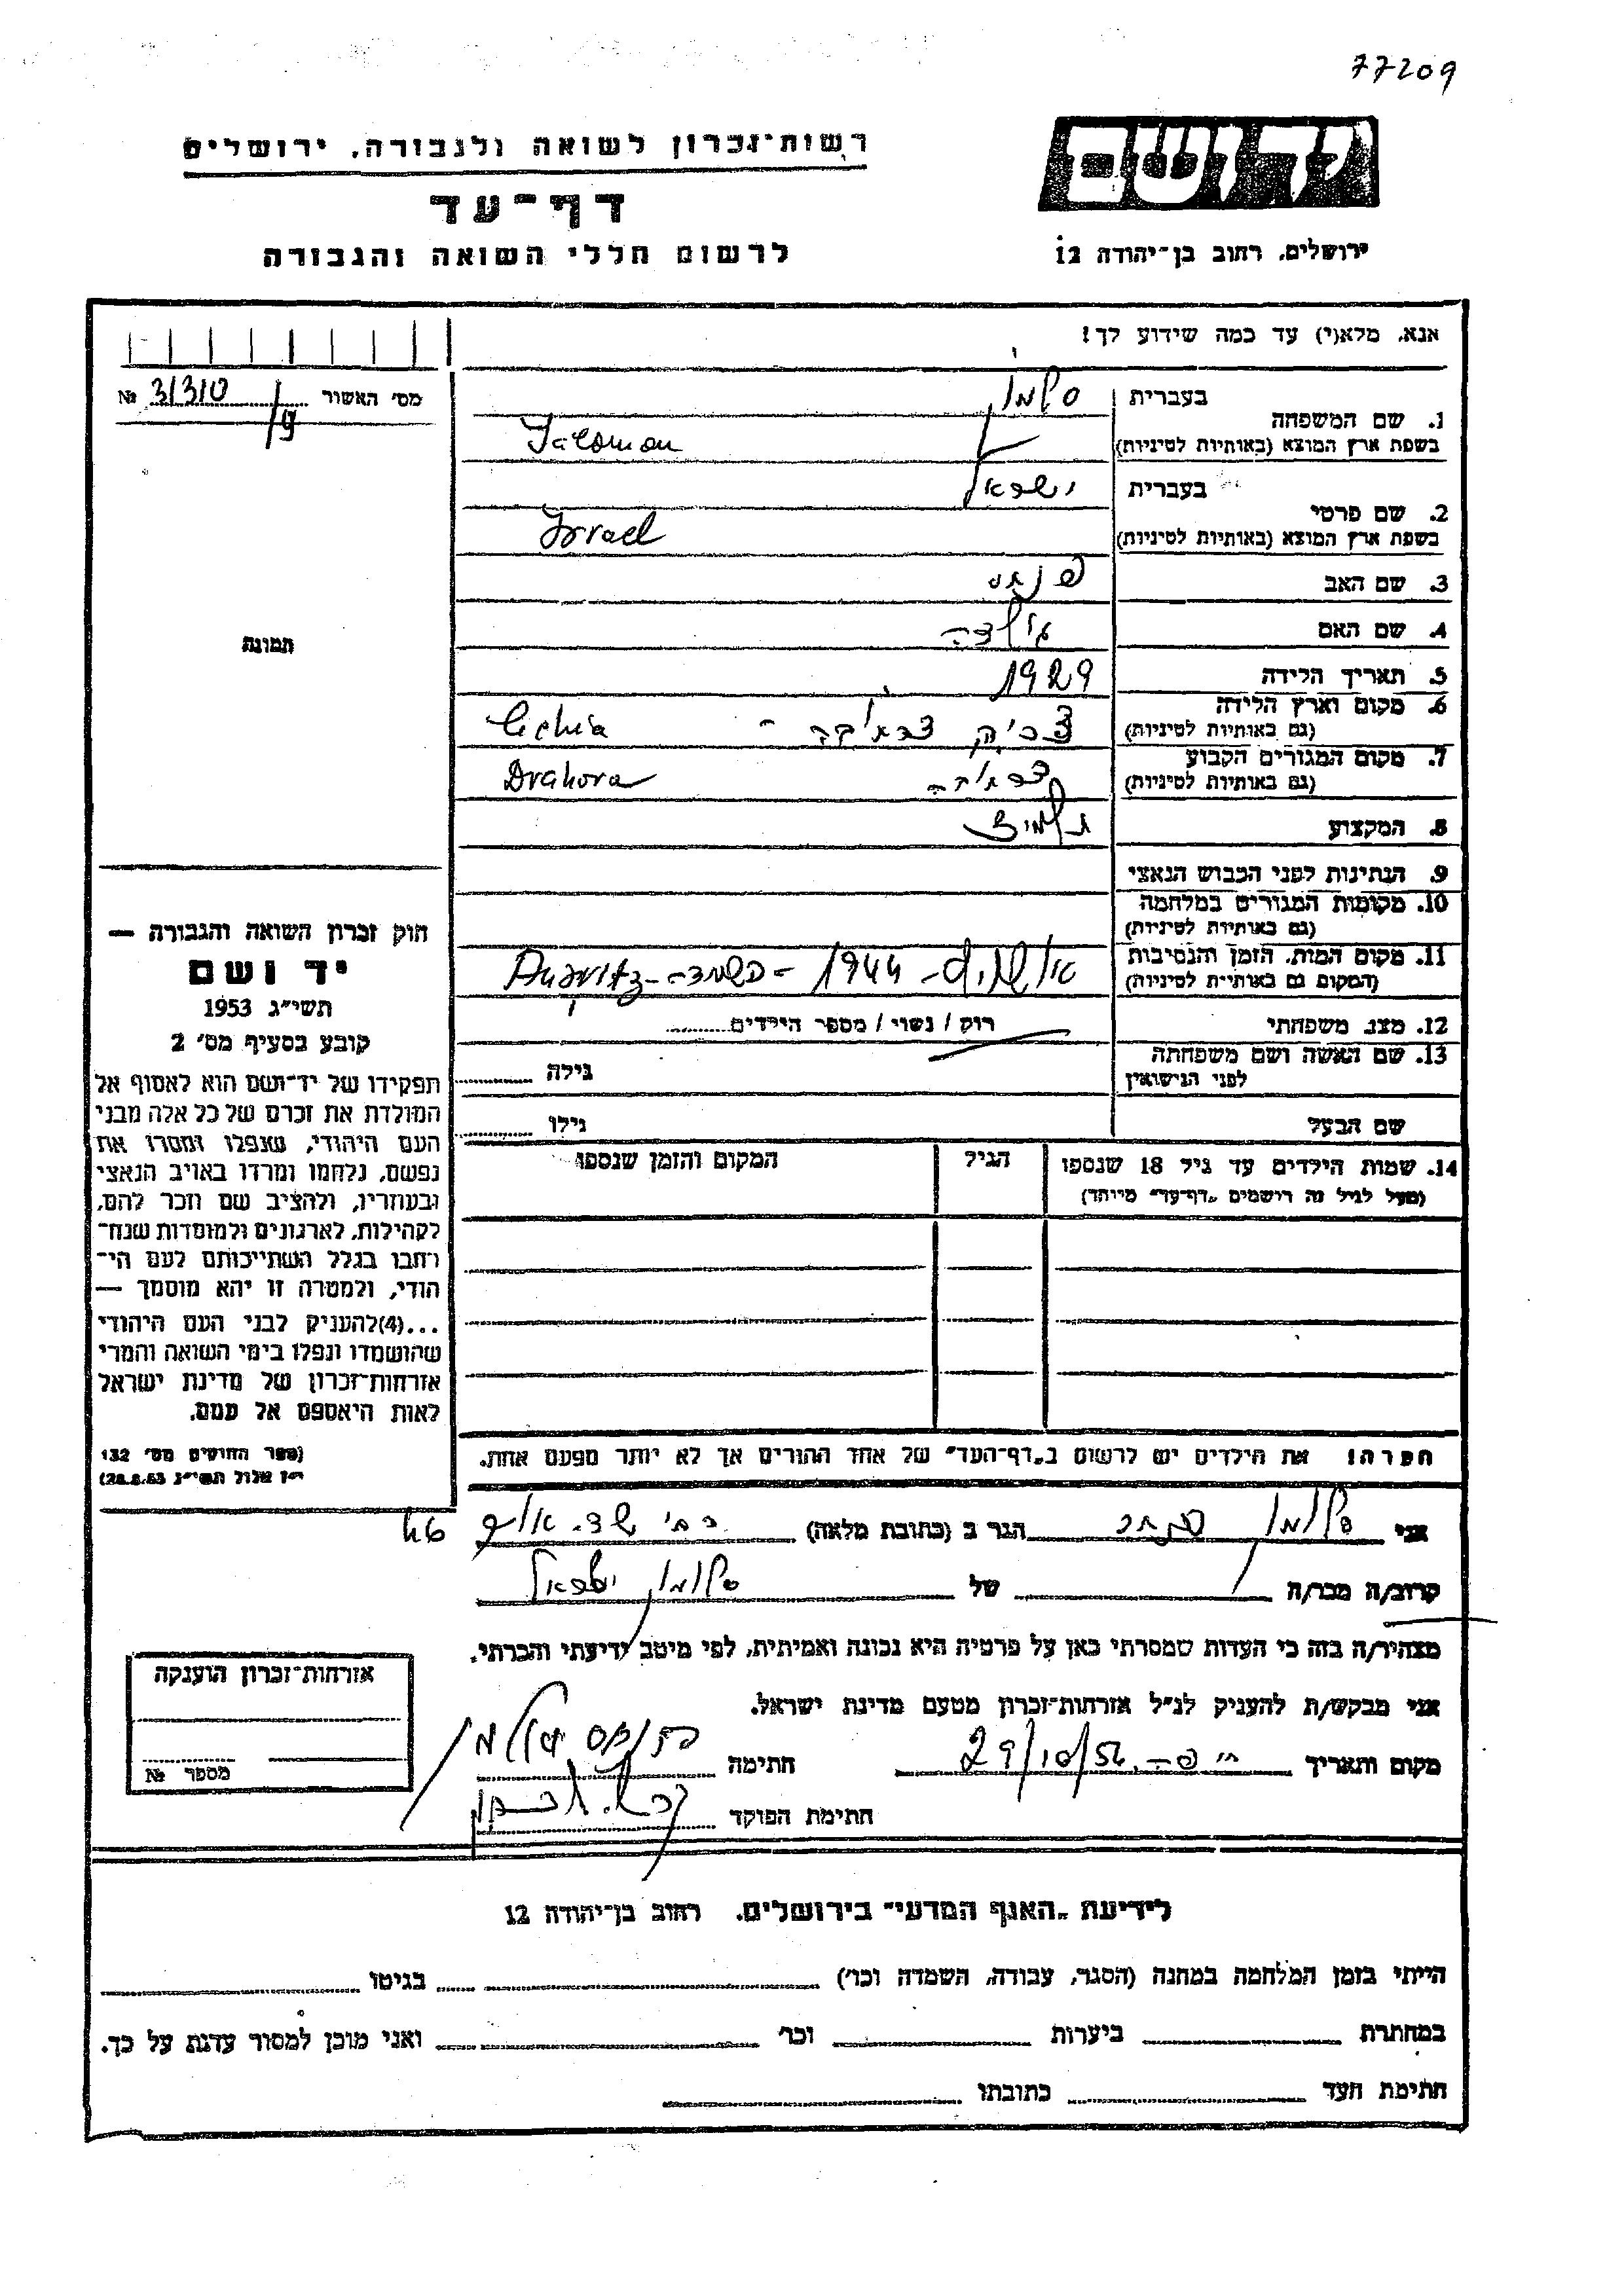 77209
יד ושם
רשות־זכרון לשואה ולגבורה, ירושלים
דף־עד
לרשום חללי השואה והגבורה
ירושלים, רחוב בן־יהודה 12
אנא, מלא(י) עד כמה שידוע לך!
מס׳ האשור № 31310
1. שם המשפחה
בעברית סלמון
בשפת ארץ המוצא (באותיות לטיניות) Salomon
2. שם פרטי
בעברית ישראל
בשפת ארץ המוצא (באותיות לטיניות) Israel
3. שם האב
4. שם האם
5. תאריך הלידה 1929
6. מקום וארץ הלידה
(גם באותיות לטיניות)
7. מקום המגורים הקבוע
(גם באותיות לטיניות) Drahova
8. המקצוע תלמיד
9. הנתינות לפני הכבוש הנאצי
10. מקומות המגורים במלחמה
(גם באותיות לטיניות)
11. מקום המות, הזמן והנסיבות
(המקום גם באותיות לטיניות) 1944
12. מצב משפחתי רוק / נשוי / מספר הילדים
13. שם האשה ושם משפחתה
לפני הנישואין
גילה
שם הבעל
גילו
14. שמות הילדים עד גיל 18 שנספו
(מעל לגיל זה רושמים „דף־עד״ מיוחד)
הגיל
המקום והזמן שנספו
תמונה
חוק זכרון השואה והגבורה —
יד ושם
תשי״ג 1953
קובע בסעיף מס׳ 2
תפקידו של יד־ושם הוא לאסוף אל
המולדת את זכרם של כל אלה מבני
העם היהודי, שנפלו ומסרו את
נפשם, נלחמו ומרדו באויב הנאצי
ובעוזריו, ולהציב שם וזכר להם,
לקהילות, לארגונים ולמוסדות שנח־
רחבו בגלל השתייכותם לעם הי־
הודי, ולמטרה זו יהא מוסמך —
...(4)להעניק לבני העם היהודי
שהושמדו ונפלו בימי השואה והמרי
אזרחות־זכרון של מדינת ישראל
לאות היאספם אל עמם.
(ספר החוקים מס׳ 132
י״ז אלול תשי״ג 28.8.53)
הערה! את הילדים יש לרשום ב„דף־העד״ של אחד ההורים אך לא יותר מפעם אחת.
אני סלומון הגר ב (כתובת מלאה)
קרוב/ה מכר/ה של סלומון ישראל
מצהיר/ה בזה כי העדות שמסרתי כאן על פרטיה היא נכונה ואמיתית, לפי מיטב ידיעתי והכרתי.
אני מבקש/ת להעניק לנ״ל אזרחות־זכרון מטעם מדינת ישראל.
מקום ותאריך 29/10/56 חתימה
חתימת הפוקד
אזרחות־זכרון הוענקה
מספר №
לידיעת „האגף המדעי״ בירושלים, רחוב בן־יהודה 12
הייתי בזמן המלחמה במחנה (הסגר, עבודה, השמדה וכו׳) בגיטו
במחתרת ביערות וכו׳ ואני מוכן למסור עדות על כך.
חתימת העד כתובתו